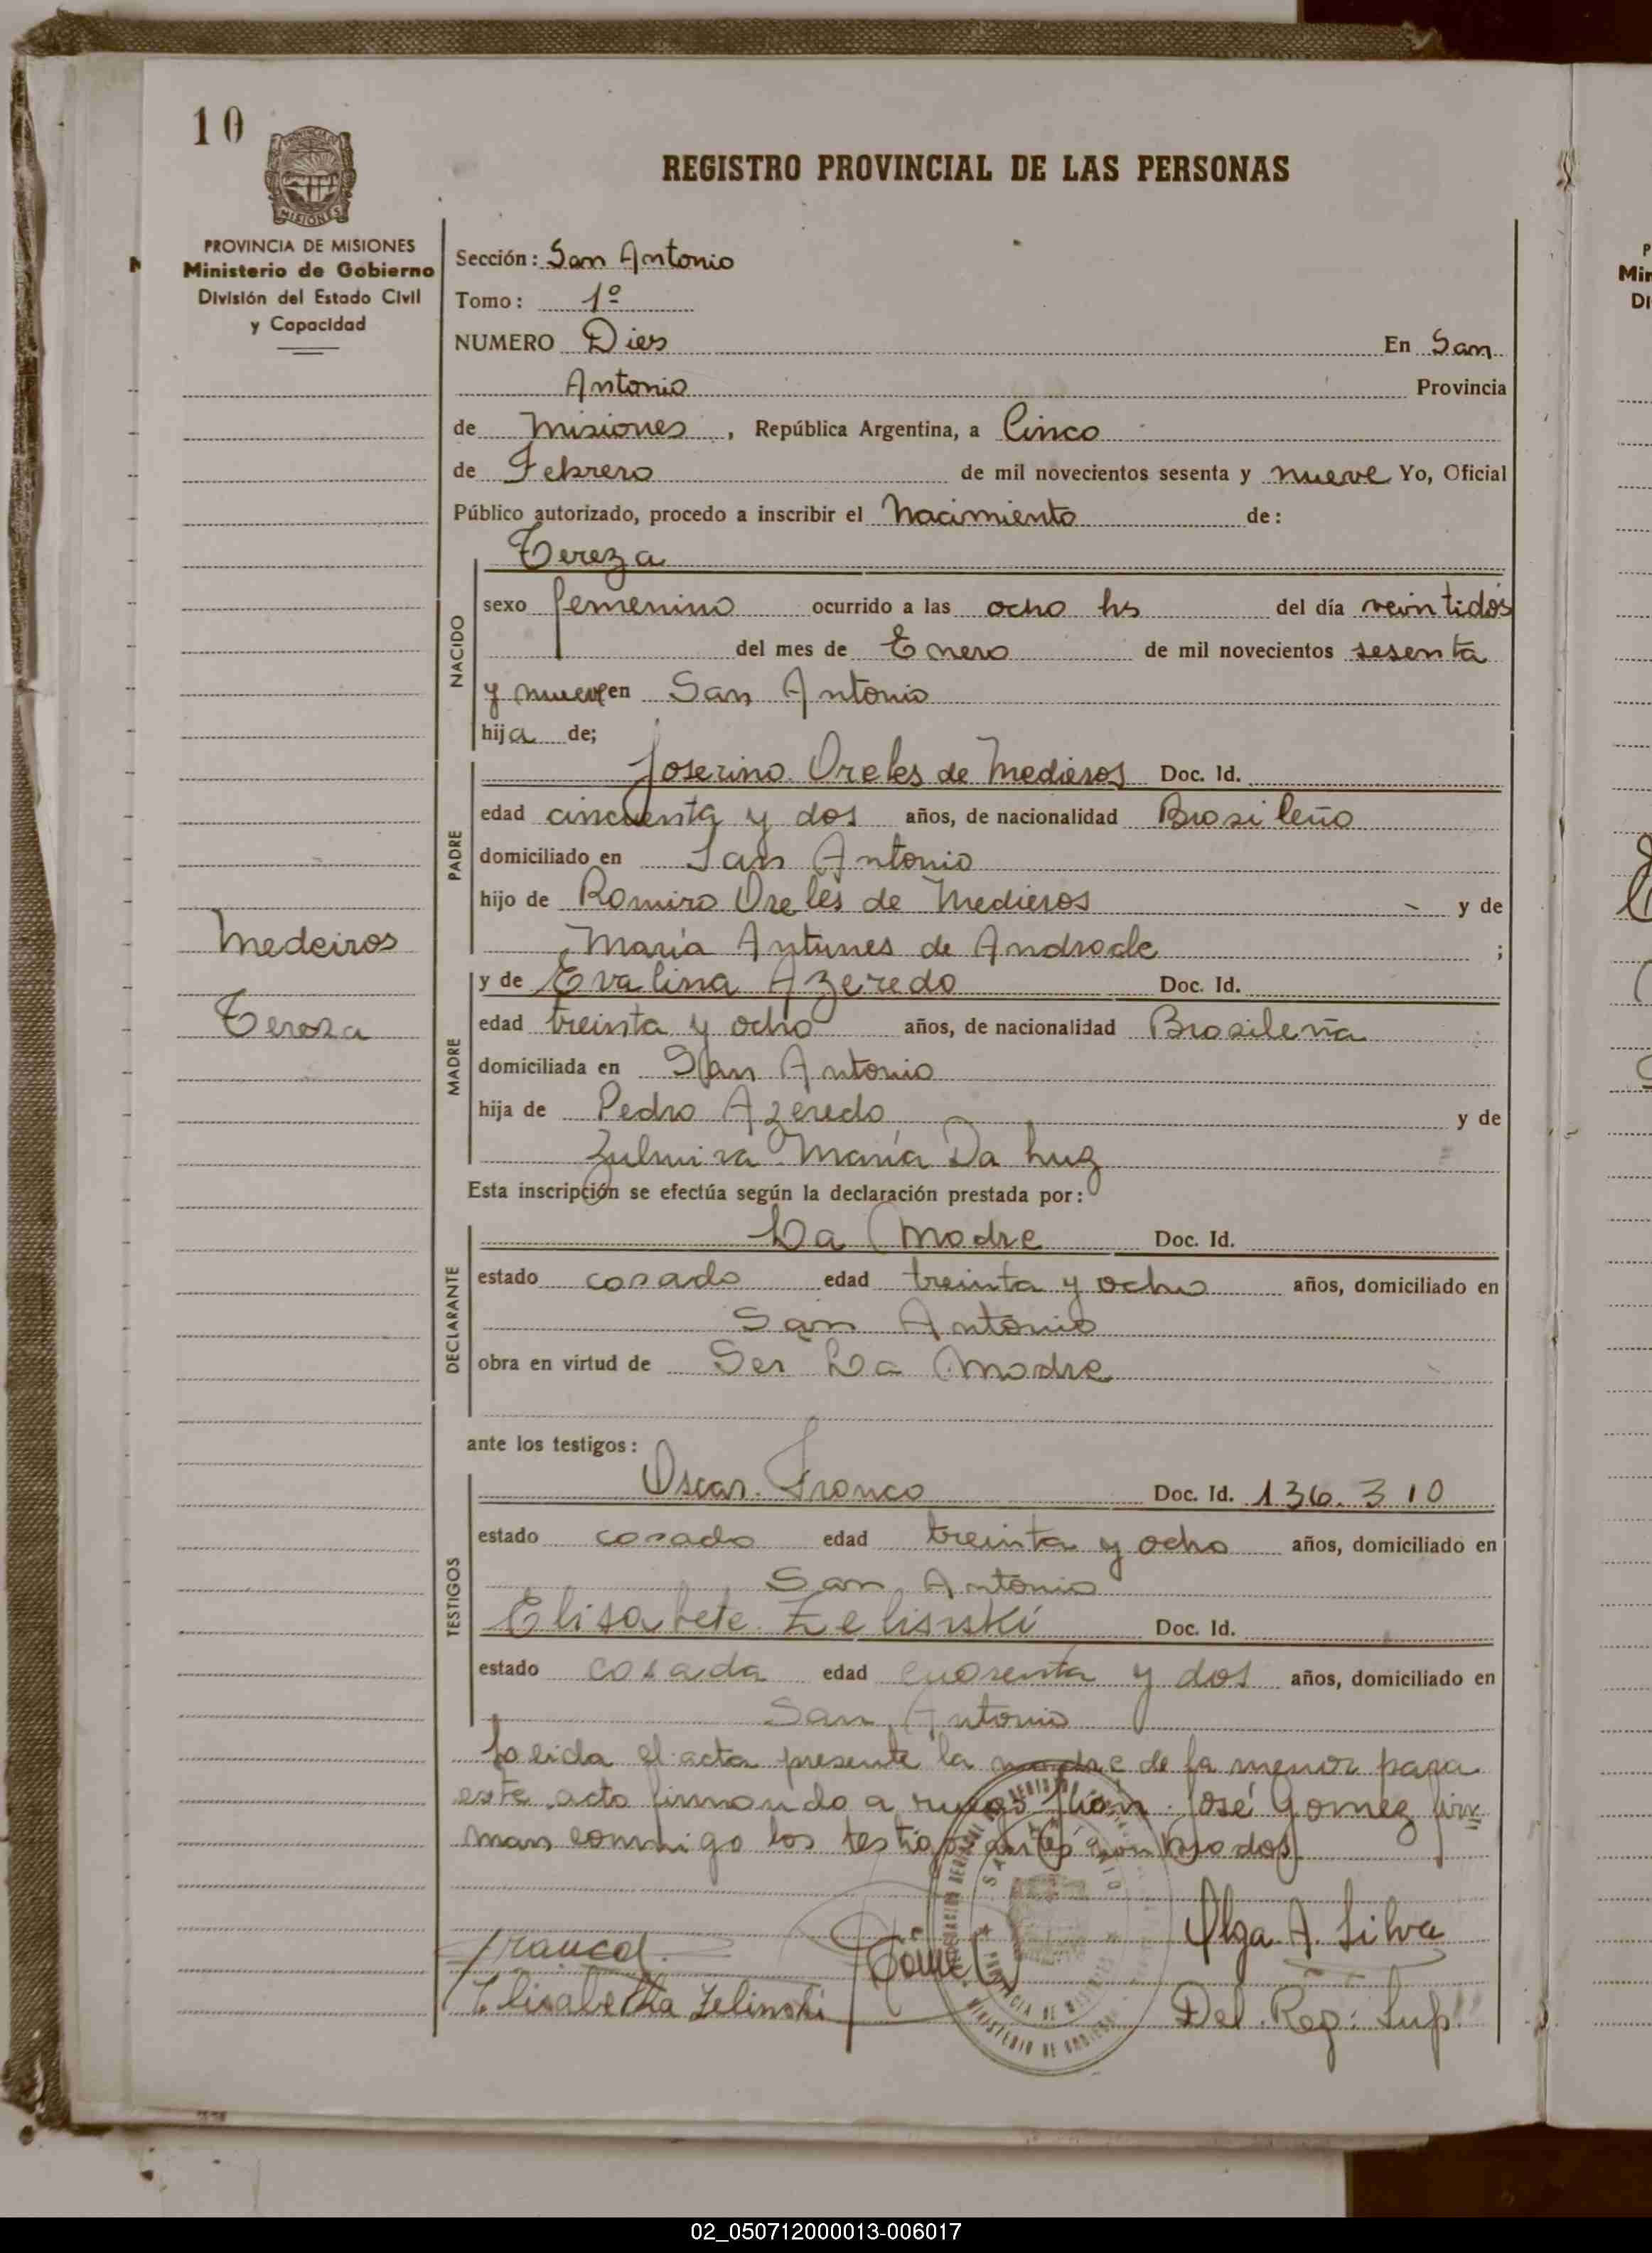 10
PROVINCIA DE MISIONES
Ministerio de Gobierno
División del Estado Civil
y Capacidad
REGISTRO PROVINCIAL DE LAS PERSONAS
Sección: San Antonio
Tomo: 1º
NUMERO Dies En San
Antonio Provincia
de Misiones, República Argentina, a Cinco
de Febrero de mil novecientos sesenta y nueve Yo, Oficial
Público autorizado, procedo a inscribir el Nacimiento de:
Tereza
NACIDO
sexo femenino ocurrido a las ocho hs del día veintidós
del mes de Enero de mil novecientos sesenta
y nueve en San Antonio
hija de;
PADRE
Joserino Oreles de Medieros Doc. Id.
edad cincuenta y dos años, de nacionalidad Brasileño
domiciliado en San Antonio
hijo de Romiro Oreles de Medieros y de
María Antunes de Andrade ;
Medeiros
Tereza
MADRE
y de Evalina Azeredo Doc. Id.
edad treinta y ocho años, de nacionalidad Brasileña
domiciliada en San Antonio
hija de Pedro Azeredo y de
Zulmira María Da Luz
Esta inscripción se efectúa según la declaración prestada por:
DECLARANTE
La Madre Doc. Id.
estado casado edad treinta y ocho años, domiciliado en
San Antonio
obra en virtud de Ser La Madre
ante los testigos:
TESTIGOS
Oscar Franco Doc. Id. 136.310
estado casado edad treinta y ocho años, domiciliado en
San Antonio
Elisabete Zelinski Doc. Id.
estado casada edad cuarenta y dos años, domiciliado en
San Antonio
Leida el acta presente la madre de la menor para
este acto firmando a ruego José Gomez fir
man conmigo los testigos antes nombrados
Franco
Gomez
Olga A. Silva
Elisabetha Zelinski
Del. Reg. Sup.
MINISTERIO DE GOBIERNO
02_050712000013-006017